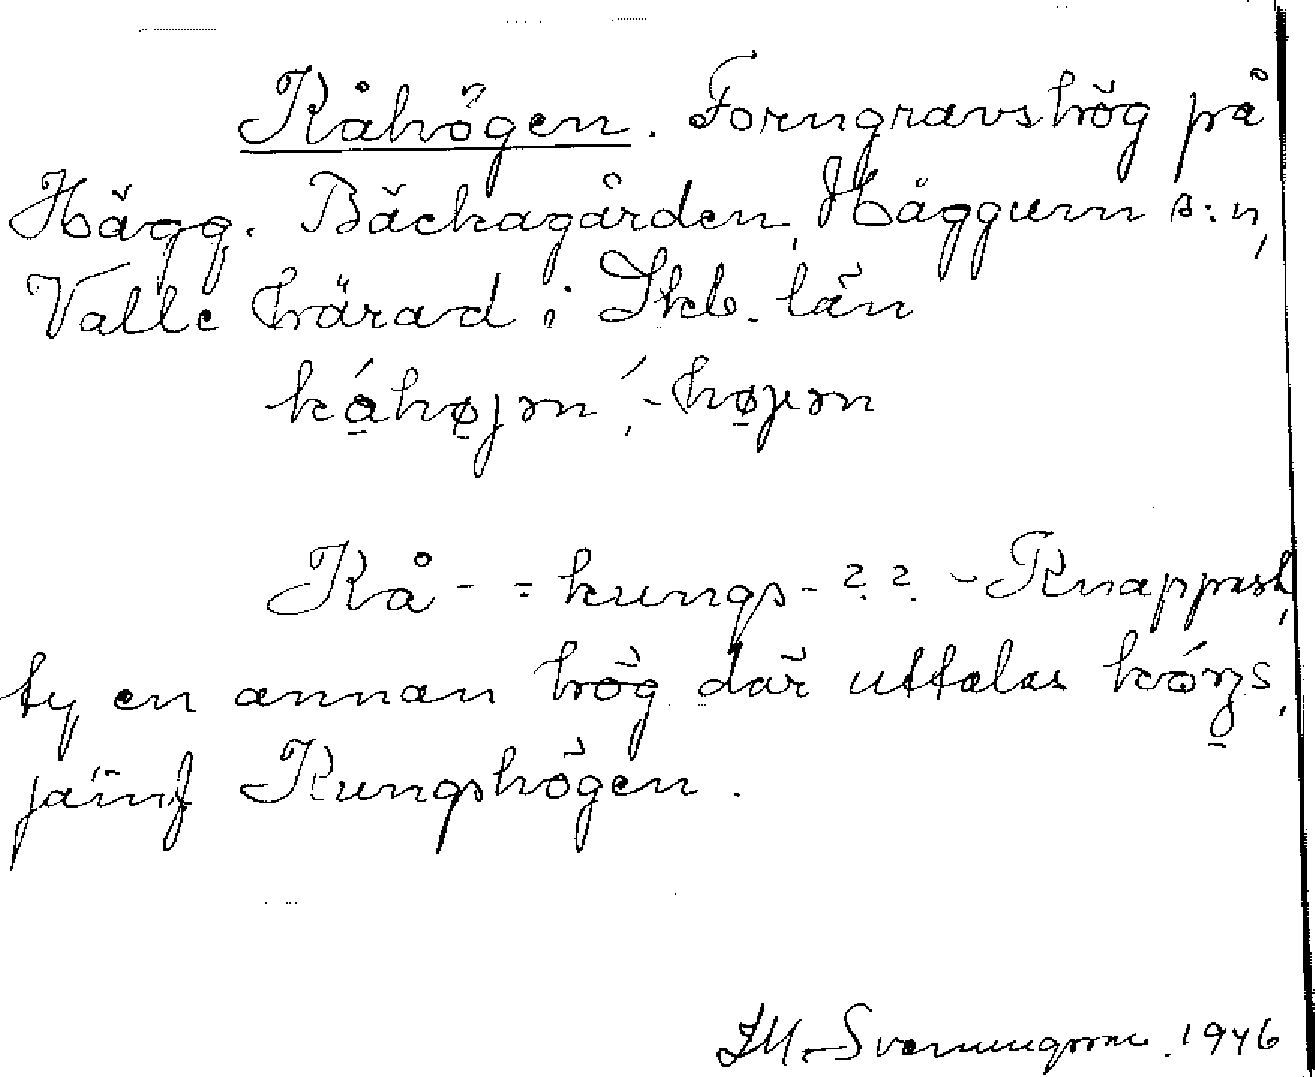 Kåhögen. Forngravshög på
Hägg. Bäckagården, Häggum s:n,
Valle härad i Skb. län
kǻhøjən, ́-højən
Kå- = kungs- ? ? - Knappast,
ty en annan hög där uttalas kóŋs,
jämf Kungshögen.
Svenungsson. 1946